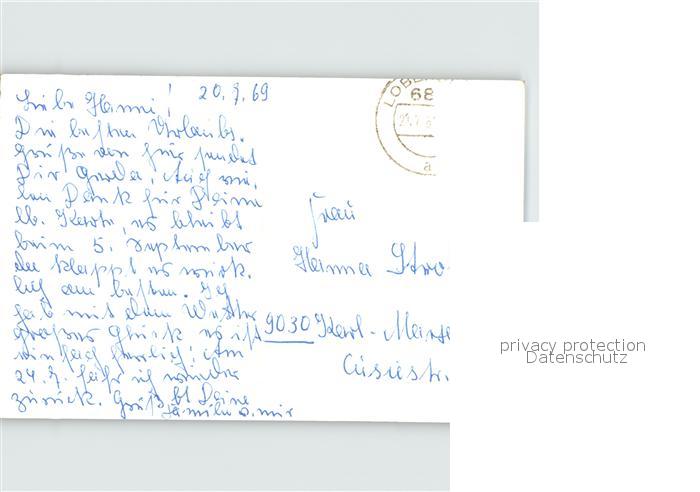 Liebe Hanni! 20.7.69
Die besten Urlaubs-
grüße von hier sendet
Dir Gerda. Auch vie-
len Dank für Deine
lb. Karte, es bleibt
beim 5. September
da klappt es wirk-
lich am besten. Ich
hab mit dem Wetter
großes Glück es ist
einfach herrlich! Am
24.7. fahr ich wieder
zurück. Grüß bt Deine
Familie v. mir
LOBE
68
a
Frau
Hanna
9030 Karl-Marx-
str.
privacy protection
Datenschutz